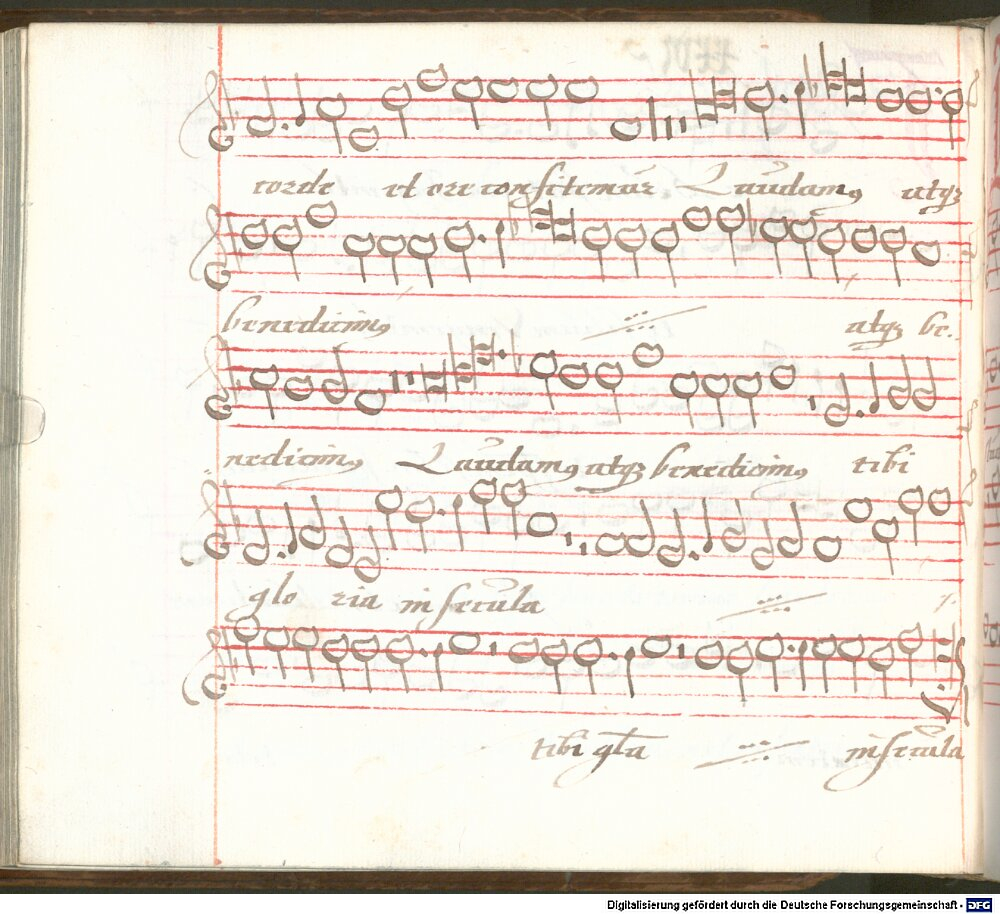 corde et ore confitemur Laudam9 atq3
benedicim9 atq3 be.
nedicim9 Laudam9 atq3 benedicim9 tibi
glo ria in secula
tibi gl̃a in secula
Digitalisierung gefördert durch die Deutsche Forschungsgemeinschaft - DFG